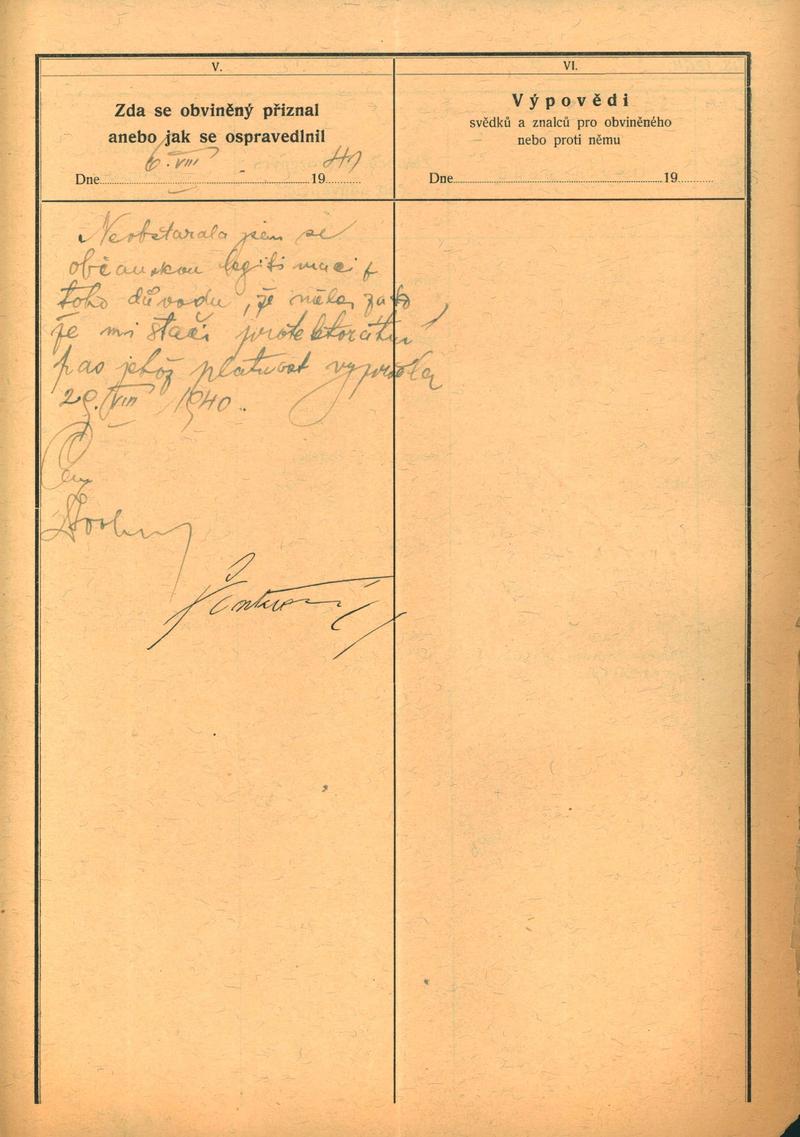 V.
Zda se obviněný přiznal
anebo jak se ospravedlnil
Dne 6. VIII 1941
VI.
Výpovědi
svědků a znalců pro obviněného
nebo proti němu
Dne 19
Neobstarala jsem si
občanskou legitimaci z
toho důvodu, že měla za to
že mi stačí protektorátní
pas jehož platnost vypršela
29. VIII 1940.